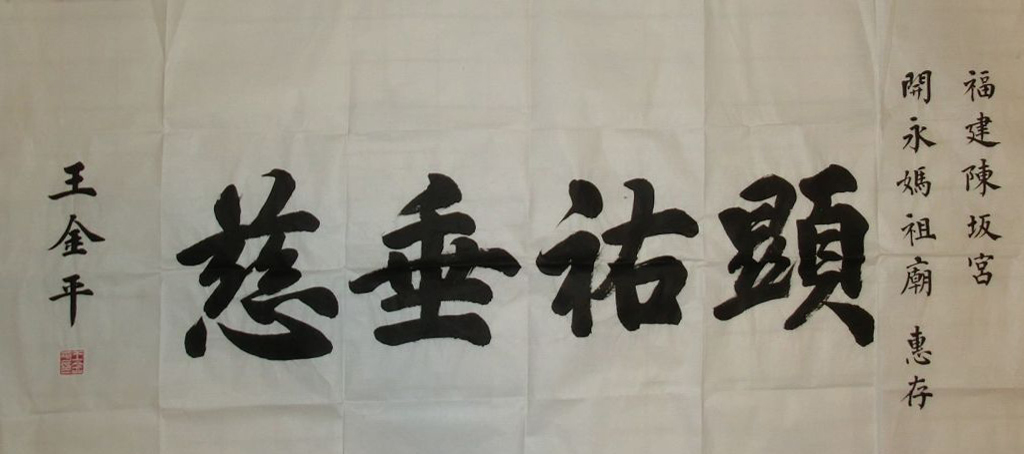 福建陳坂宮
開永媽祖廟 惠存
顯祐垂慈
王金平